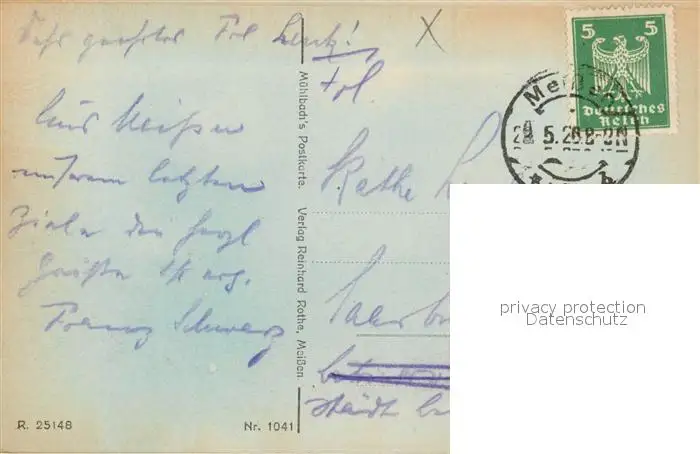 Sehr geehrtes Frl. Lentz!
Aus Meißen
unserem letzten
Ziele die herzl
Grüße Ihr erg.
Franz Schwarz
R. 25148
Nr. 1041
Mühlbach's Postkarte. Verlag Reinhard Rothe, Meißen
Frl.
Käthe
Saarbrü
Stadt
5 5
Deutsches
Reich
Meißen
5.26.8-9N
b
privacy protection
Datenschutz